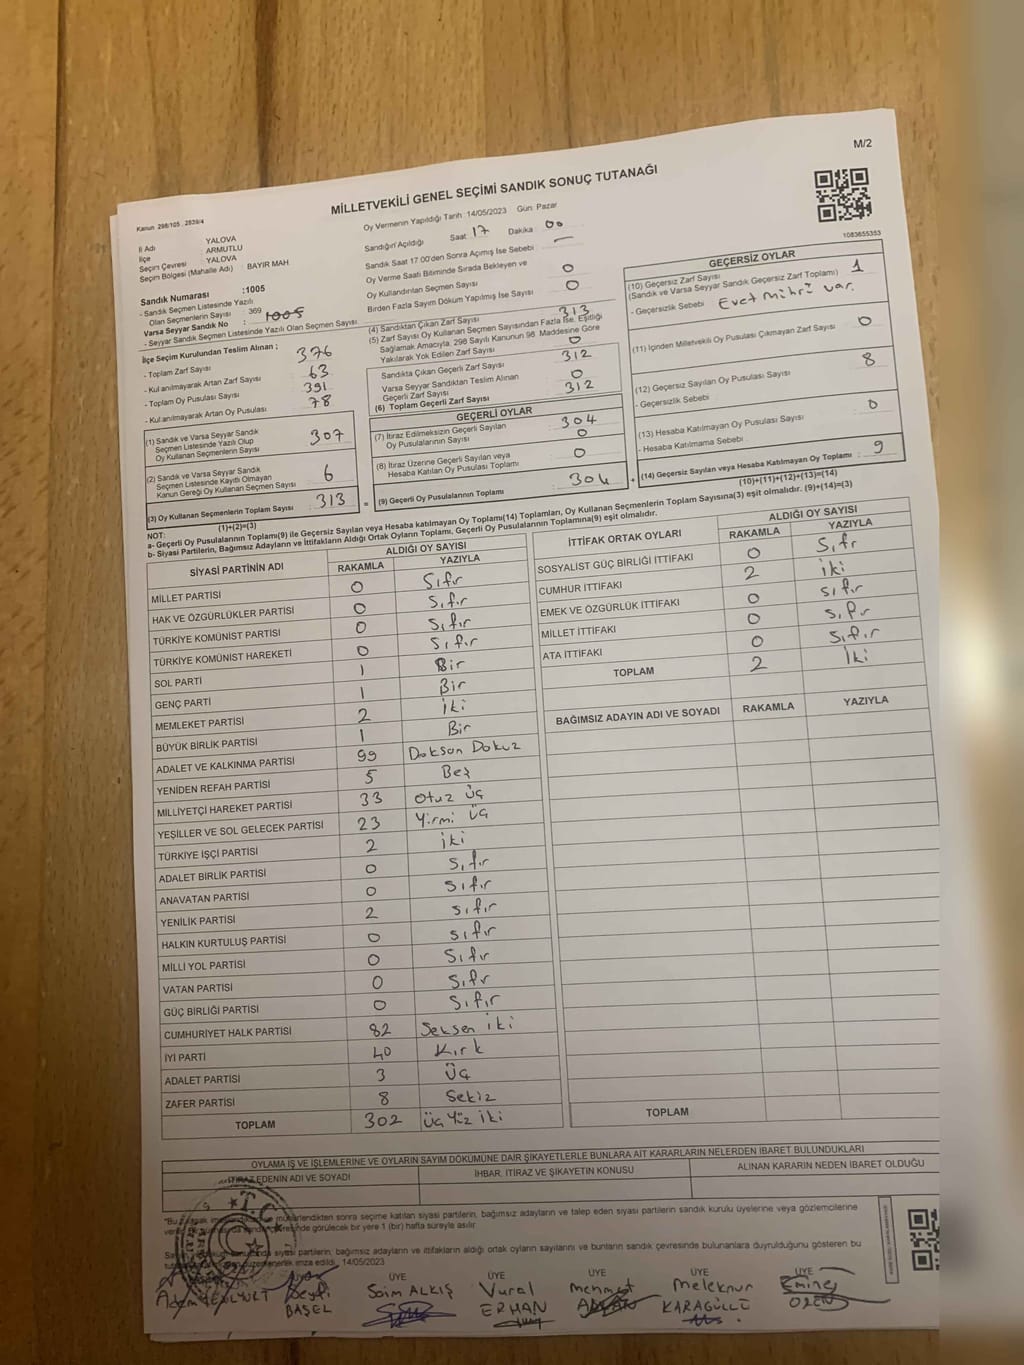 M/2
MİLLETVEKİLİ GENEL SEÇİMİ SANDIK SONUÇ TUTANAĞI
Kanun 298/105, 2839/4
Oy Vermenin Yapıldığı Tarih :14/05/2023 Gün: Pazar
1083655353
İl Adı YALOVA
İlçe ARMUTLU
Seçim Çevresi YALOVA
Seçim Bölgesi (Mahalle Adı) : BAYIR MAH
Sandık Numarası :1005
- Sandık Seçmen Listesinde Yazılı
Olan Seçmenlerin Sayısı : 369
Varsa Seyyar Sandık No : 1005
- Seyyar Sandık Seçmen Listesinde Yazılı Olan Seçmen Sayısı
Sandığın Açıldığı Saat 17 Dakika 00
Sandık Saat 17.00'den Sonra Açımış İse Sebebi —
Oy Verme Saati Bitiminde Sırada Bekleyen ve
Oy Kullandırılan Seçmen Sayısı 0
Birden Fazla Sayım Döküm Yapılmış İse Sayısı 0
İlçe Seçim Kurulundan Teslim Alınan ;
- Toplam Zarf Sayısı : 376
- Kullanılmayarak Artan Zarf Sayısı : 63
- Toplam Oy Pusulası Sayısı : 391
- Kullanılmayarak Artan Oy Pusulası : 78
(1) Sandık ve Varsa Seyyar Sandık
Seçmen Listesinde Yazılı Olup
Oy Kullanan Seçmenlerin Sayısı 307
(2) Sandık ve Varsa Seyyar Sandık
Seçmen Listesinde Kayıtlı Olmayan
Kanun Gereği Oy Kullanan Seçmen Sayısı 6
(3) Oy Kullanan Seçmenlerin Toplam Sayısı 313
(1)+(2)=(3)
(4) Sandıktan Çıkan Zarf Sayısı 313
(5) Zarf Sayısı Oy Kullanan Seçmen Sayısından Fazla İse, Eşitliği
Sağlamak Amacıyla, 298 Sayılı Kanunun 98. Maddesine Göre
Yakılarak Yok Edilen Zarf Sayısı 0
Sandıkta Çıkan Geçerli Zarf Sayısı 312
Varsa Seyyar Sandıktan Teslim Alınan
Geçerli Zarf Sayısı 0
(6) Toplam Geçerli Zarf Sayısı 312
GEÇERLİ OYLAR
(7) İtiraz Edilmeksizin Geçerli Sayılan
Oy Pusulalarının Sayısı 304
0
(8) İtiraz Üzerine Geçerli Sayılan veya
Hesaba Katılan Oy Pusulası Toplamı 0
(9) Geçerli Oy Pusulalarının Toplamı 304
GEÇERSİZ OYLAR
(10) Geçersiz Zarf Sayısı
(Sandık ve Varsa Seyyar Sandık Geçersiz Zarf Toplamı) 1
- Geçersizlik Sebebi : Evet mührü var.
(11) İçinden Milletvekili Oy Pusulası Çıkmayan Zarf Sayısı 0
(12) Geçersiz Sayılan Oy Pusulası Sayısı 8
- Geçersizlik Sebebi
(13) Hesaba Katılmayan Oy Pusulası Sayısı 0
- Hesaba Katılmama Sebebi
(14) Geçersiz Sayılan veya Hesaba Katılmayan Oy Toplamı : 9
(10)+(11)+(12)+(13)=(14)
NOT:
a- Geçerli Oy Pusulalarının Toplamı(9) ile Geçersiz Sayılan veya Hesaba katılmayan Oy Toplamı(14) Toplamları, Oy Kullanan Seçmenlerin Toplam Sayısına(3) eşit olmalıdır. (9)+(14)=(3)
b- Siyasi Partilerin, Bağımsız Adayların ve İttifakların Aldığı Ortak Oyların Toplamı, Geçerli Oy Pusulalarının Toplamına(9) eşit olmalıdır.
SİYASİ PARTİNİN ADI ALDIĞI OY SAYISI
RAKAMLA YAZIYLA
MİLLET PARTİSİ 0 Sıfır
HAK VE ÖZGÜRLÜKLER PARTİSİ 0 Sıfır
TÜRKİYE KOMÜNİST PARTİSİ 0 Sıfır
TÜRKİYE KOMÜNİST HAREKETİ 0 Sıfır
SOL PARTİ 1 Bir
GENÇ PARTİ 1 Bir
MEMLEKET PARTİSİ 2 İki
BÜYÜK BİRLİK PARTİSİ 1 Bir
ADALET VE KALKINMA PARTİSİ 99 Doksan Dokuz
YENİDEN REFAH PARTİSİ 5 Beş
MİLLİYETÇİ HAREKET PARTİSİ 33 Otuz üç
YEŞİLLER VE SOL GELECEK PARTİSİ 23 Yirmi üç
TÜRKİYE İŞÇİ PARTİSİ 2 iki
ADALET BİRLİK PARTİSİ 0 Sıfır
ANAVATAN PARTİSİ 0 Sıfır
YENİLİK PARTİSİ 2 sıfır
HALKIN KURTULUŞ PARTİSİ 0 sıfır
MİLLİ YOL PARTİSİ 0 Sıfır
VATAN PARTİSİ 0 Sıfır
GÜÇ BİRLİĞİ PARTİSİ 0 Sıfır
CUMHURİYET HALK PARTİSİ 82 Seksen iki
İYİ PARTİ 40 Kırk
ADALET PARTİSİ 3 Üç
ZAFER PARTİSİ 8 Sekiz
TOPLAM 302 üç Yüz iki
İTTİFAK ORTAK OYLARI ALDIĞI OY SAYISI
RAKAMLA YAZIYLA
SOSYALİST GÜÇ BİRLİĞİ İTTİFAKI 0 Sıfır
CUMHUR İTTİFAKI 2 iki
EMEK VE ÖZGÜRLÜK İTTİFAKI 0 sıfır
MİLLET İTTİFAKI 0 sıfır
ATA İTTİFAKI 0 Sıfır
TOPLAM 2 İki
BAĞIMSIZ ADAYIN ADI VE SOYADI RAKAMLA YAZIYLA
TOPLAM
OYLAMA İŞ VE İŞLEMLERİNE VE OYLARIN SAYIM DÖKÜMÜNE DAİR ŞİKAYETLERLE BUNLARA AİT KARARLARIN NELERDEN İBARET BULUNDUKLARI
İTİRAZ EDENİN ADI VE SOYADI İHBAR, İTİRAZ VE ŞİKAYETİN KONUSU ALINAN KARARIN NEDEN İBARET OLDUĞU
T.C.
mühürlendikten sonra seçime katılan siyasi partilerin, bağımsız adayların ve talep eden siyasi partilerin sandık kurulu üyelerine veya gözlemcilerine
görülecek bir yere 1 (bir) hafta süreyle asılır.
siyasi partilerin, bağımsız adayların ve ittifakların aldığı ortak oyların sayılarını ve bunların sandık çevresinde bulunanlara duyrulduğunu gösteren bu
düzenlenerek imza edildi. 14/05/2023
ÜYE ÜYE ÜYE ÜYE ÜYE ÜYE
Adem Seyfi BAŞEL Saim ALKIŞ Vural ERHAN mehmet Meleknur KARAGÜLLÜ Emine ÖREN